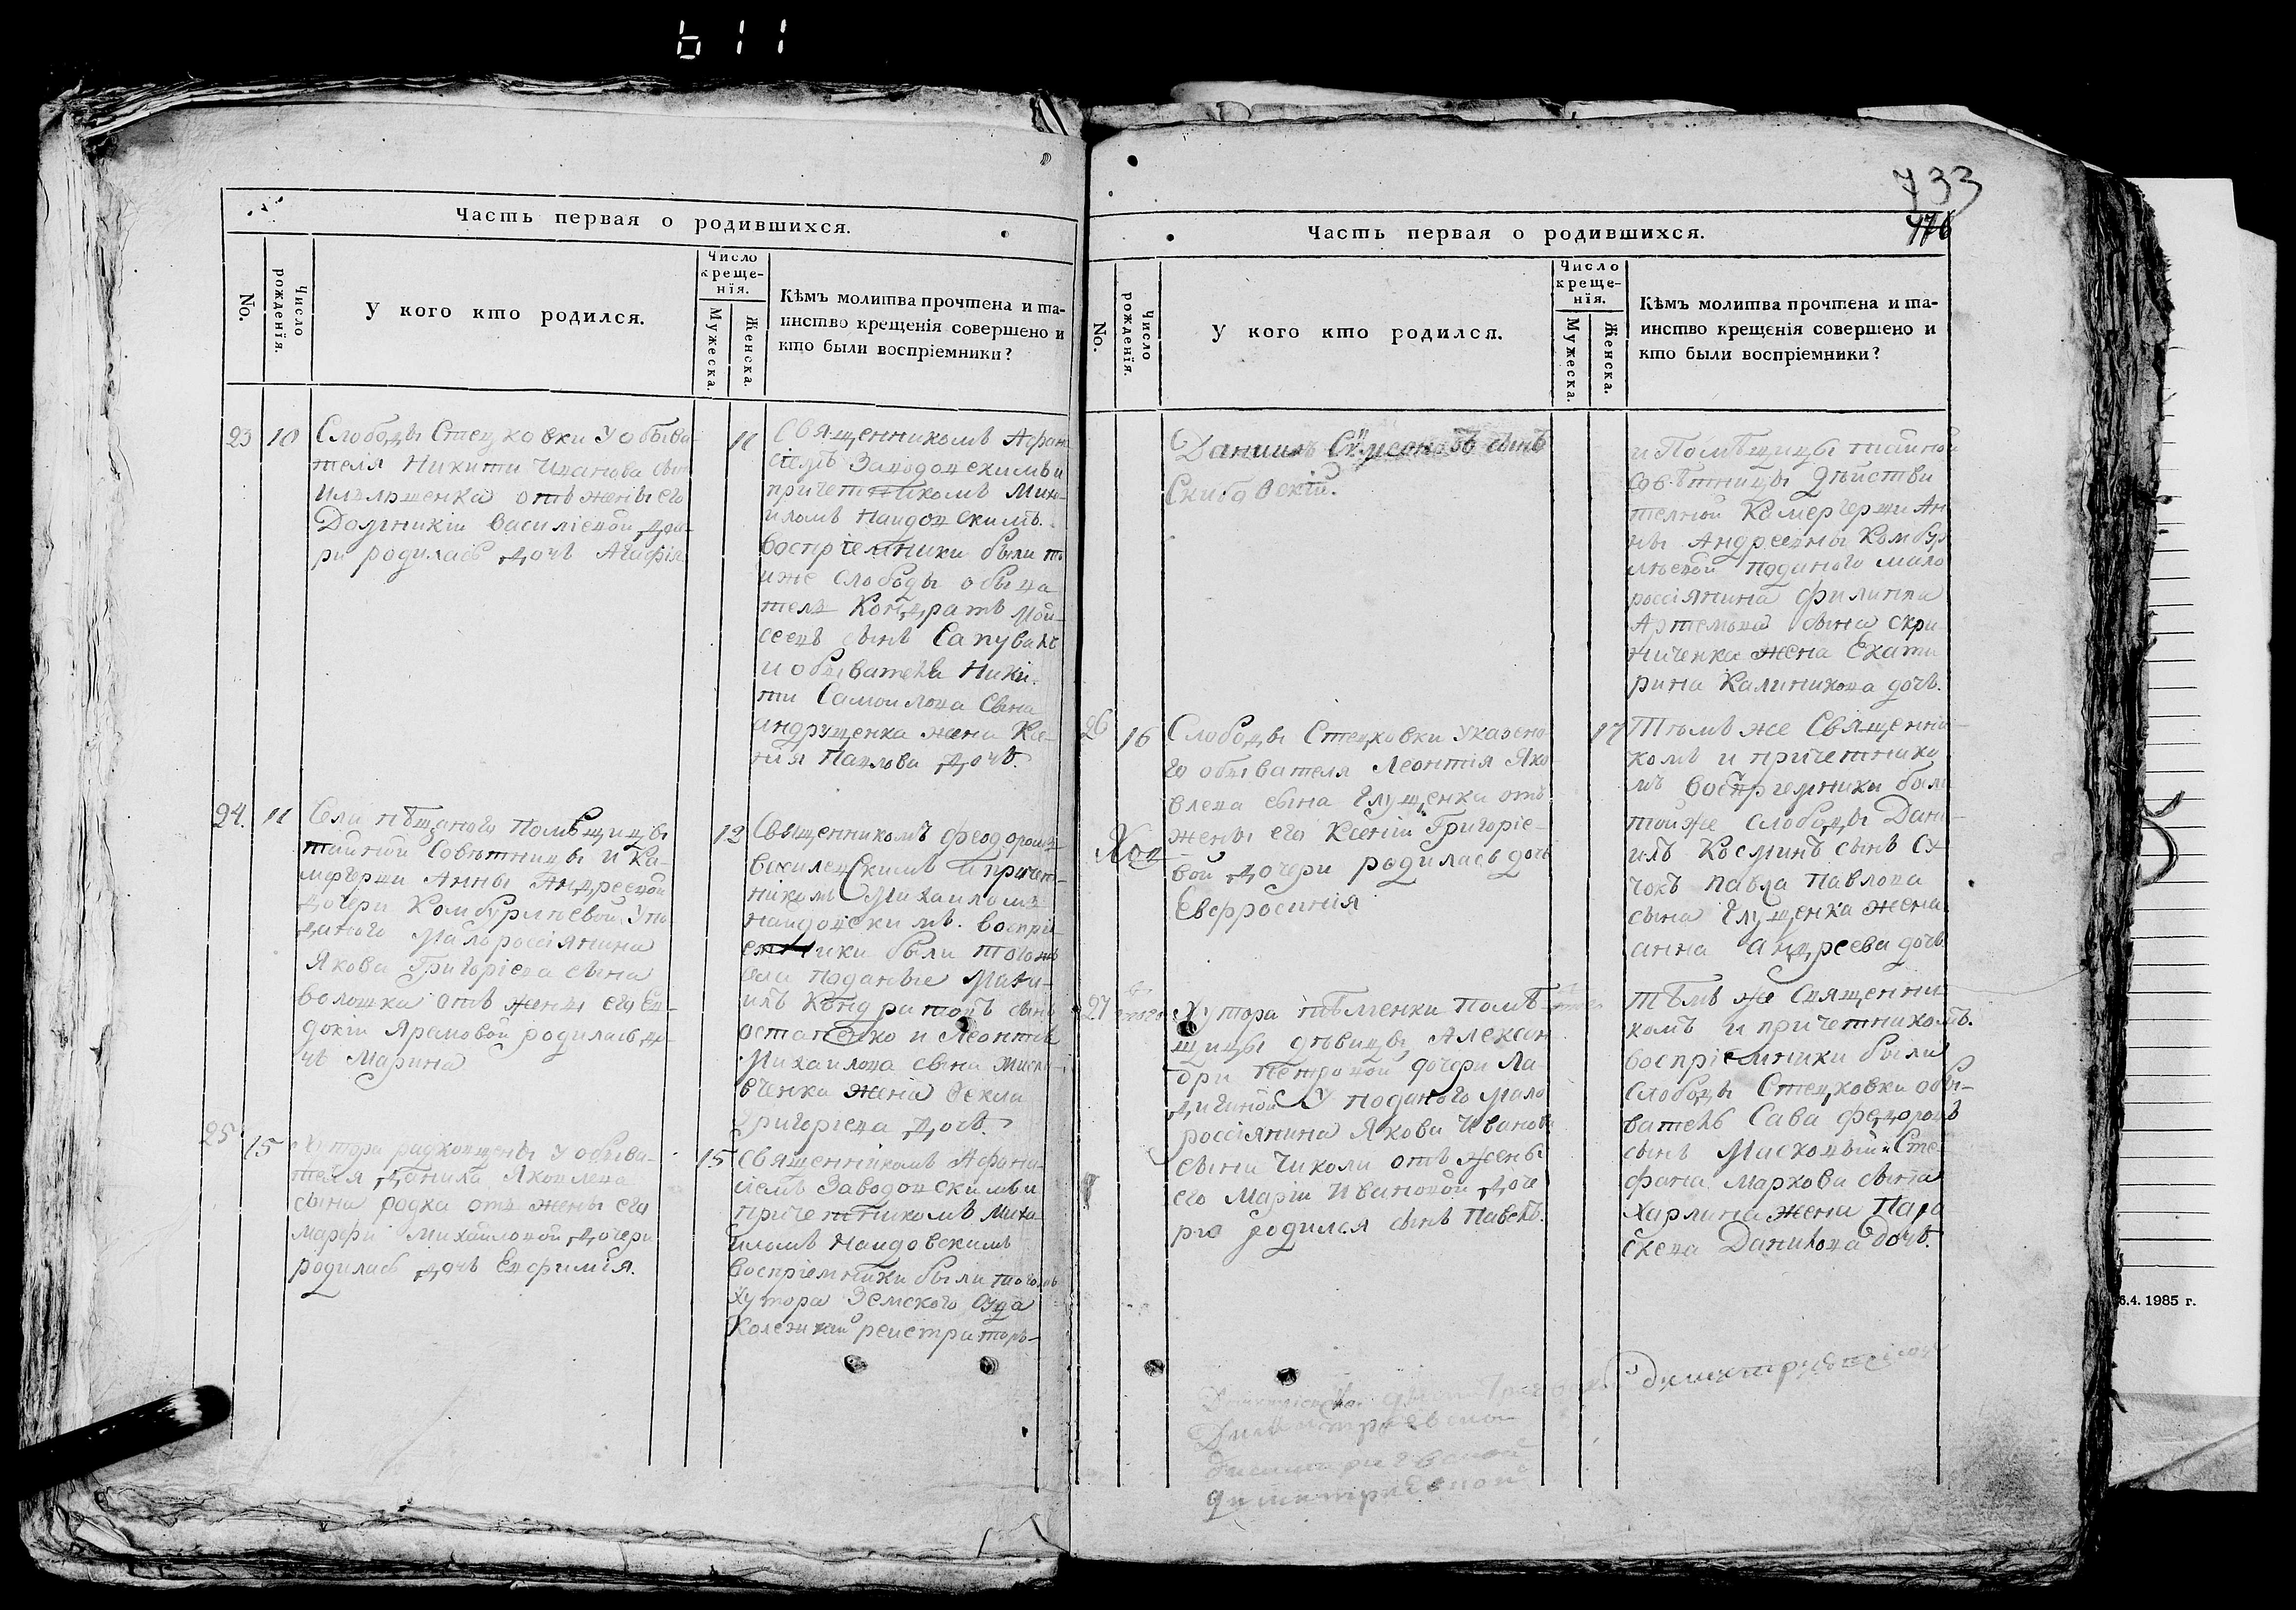 611
Часть первая о родившихся.
No.
Число рожденія.
У кого кто родился.
Число креще-
нія.
Мужеска.
Женска.
Кѣмъ молитва прочтена и та-
инство крещенія совершено и
кто были воспріемники?
23 10
Слободы Стецковки у обыва-
теля Никити Иванова сы
отъ жены его
Василіевой доч-
ри родилась дочъ Агафія
11
Священникомъ Афан
сіемъ Заводовскимъ и
причетникомъ Миха-
иломъ Наидовскимъ.
воспріемники были то
иже слободы обыва
тель Кондратъ Мои-
сеевъ сынъ Сапуванъ
и обывателя Ники-
ти Самоилова сына
андрущенка жена Ксе-
нія Павлова дочъ.
24. 11
Помѣщицы
тайной совѣтницы и Ка-
мергерши Анны Андреевой
дочери Комбурлѣевой у по
даного Малороссіянина
Якова Григоріева сына
волошка отъ жены его Ев-
докіи Ярамовой родилась до-
чъ Марина
12
Священникомъ Феодоромъ
и причет-
никомъ Михаиломъ
наидовскимъ. воспрі-
емники были тогожъ
села поданые Миха-
илъ Кондратовъ сынъ
остапенко и Леонтія
Михаилова сына
вченка жена Фекла
григоріева дочъ.
25 15
Хутора радковщены у обыва-
теля Данила Яковлева
сына радка отъ жены его
марфи михаиловой дочери
родилась дочъ Евфимія.
15
Священникомъ Афана-
сіемъ Заводовскимъ и
причетникомъ Миха
иломъ Наидовскимъ
воспріемники были тогожъ
хутора Земского суда
Колежкий реистраторъ
733
476
Часть первая о родившихся.
No.
Число рожденія.
У кого кто родился.
Число креще-
нія.
Мужеска.
Женска.
Кѣмъ молитва прочтена и та-
инство крещенія совершено и
кто были воспріемники?
Даниилъ Симеоновъ сынъ
Скибовскій.
и Помѣщицы тайной
совѣтницы дѣйстви
телной Камергерши Ан
ны Андреевны Комбур
лѣевой поданого мало
россіянина филиппа
Артемьева сына скри
ниченка жена Екати
рина Калиникова дочъ.
26 16
Слободы Стецковки указено
го обывателя Леонтія Яко
влева сына Глущенка отъ
жены его Ксеніи Григоріе-
вой дочери родилась дочъ
Евфросинія
17
Тѣмъ же Священни-
комъ и причетнико
мъ воспріемники были
тойже слободы Дани-
илъ Косминъ сынъ Сх
чокъ павла Павлова
сына Глущенка жена
анна андреева дочъ
27
Хутора Помѣ-
щицы дѣвицы Алексан
дри Петровой дочери Ла
дигиной У поданого мало
россіянина Якова Иванова
сына Чиколи отъ жены
его Маріи Ивановой доче
рю родился сынъ Павелъ.
тѣмъ же Священни
комъ и причетникомъ.
воспріемники были
слободы Стецковки обы-
ватель Сава Федоровъ
сынъ Масховый и Сте-
фана Маркова сына
Харлана жена Пара
скева Данилова дочъ.
6.4. 1985 г.